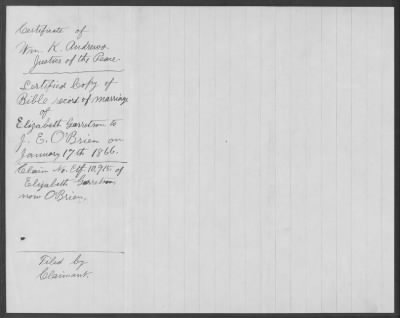 Certificate of
Wm K. Andrews
Justice of the Peace.
Certified Copy of
Bible record of marriage
of
Elizabeth Garretson to
J. E. O'Brien on
January 17th 1866.
Claim No. of
Elizabeth Garretson
now O'Brien.
Filed by
Claimant.